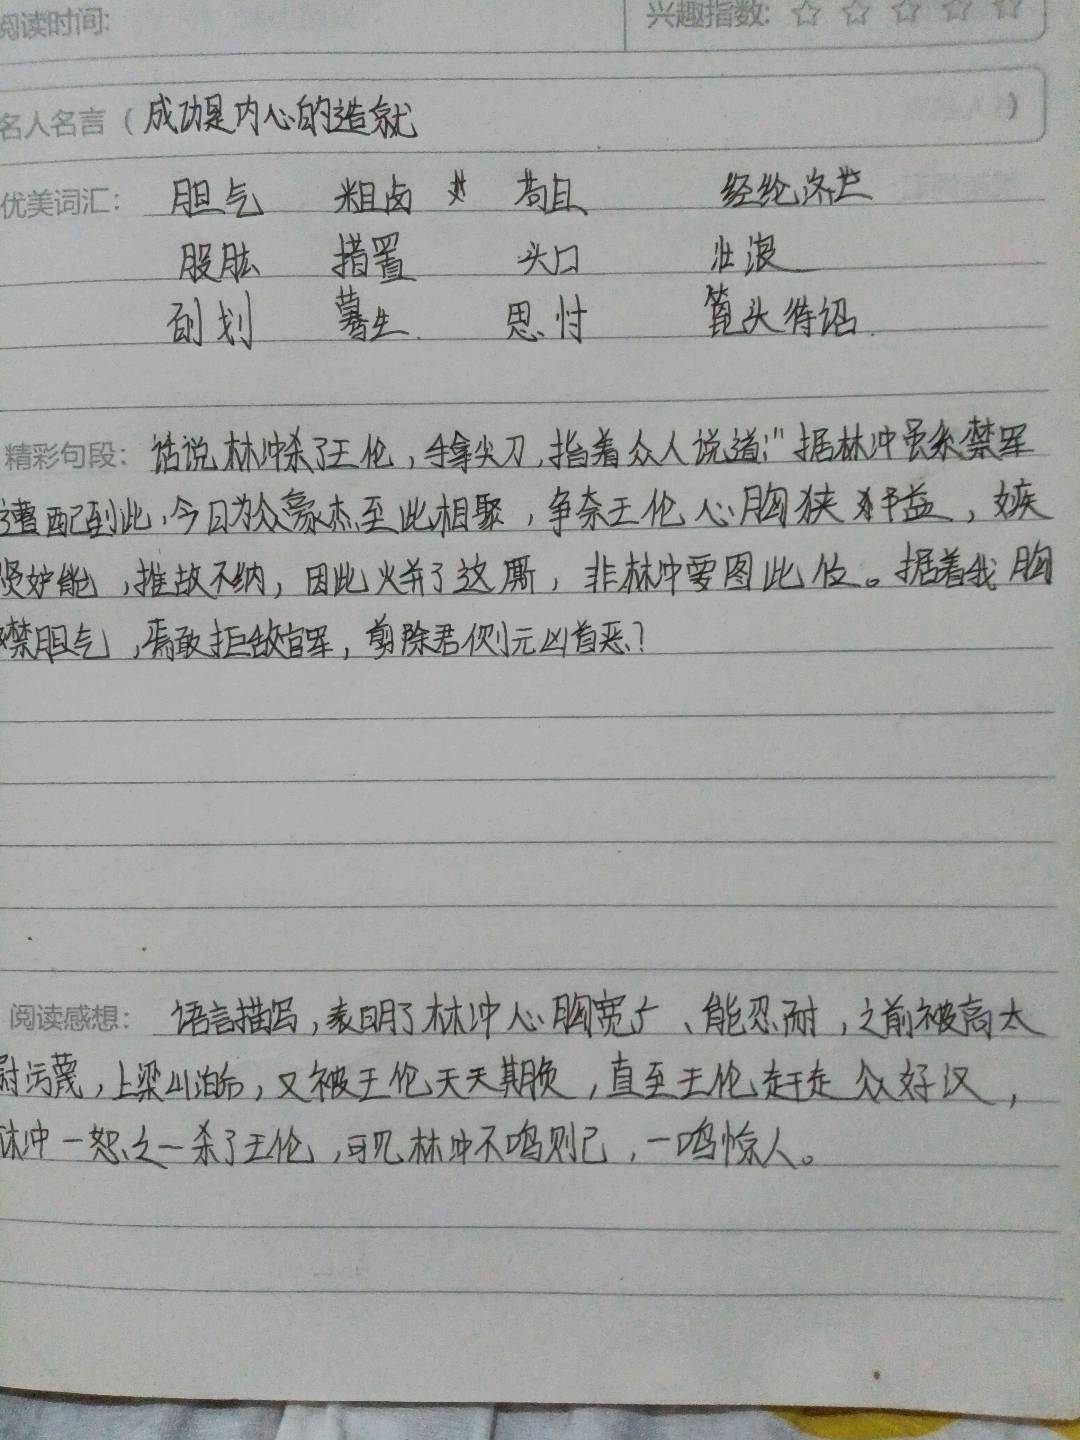 阅读时间:
兴趣指数: ☆ ☆ ☆ ☆ ☆
名人名言（成功是内心的造就）
优美词汇: 胆气 粗卤 苟且 经纶济世
股肱 措置 头口
划 思忖 头待诏.
精彩句段: 话说林冲杀了王伦，手拿尖刀，指着众人说道:"据林冲虽系禁军
遭配到此，今日为众豪杰至此相聚，争奈王伦心胸狭隘，嫉
贤妒能，推故不纳，因此火并了这厮，非林冲要图此位。据着我胸
襟胆气，焉敢拒敌官军，剪除君侧元凶首恶？
阅读感想: 语言描写，表明了林冲心胸宽广、能忍耐，之前被高太
尉污蔑，上梁山泊后，又被王伦天天欺负，直至王伦赶走众好汉，
林冲一怒之一杀了王伦，可见林冲不鸣则已，一鸣惊人。